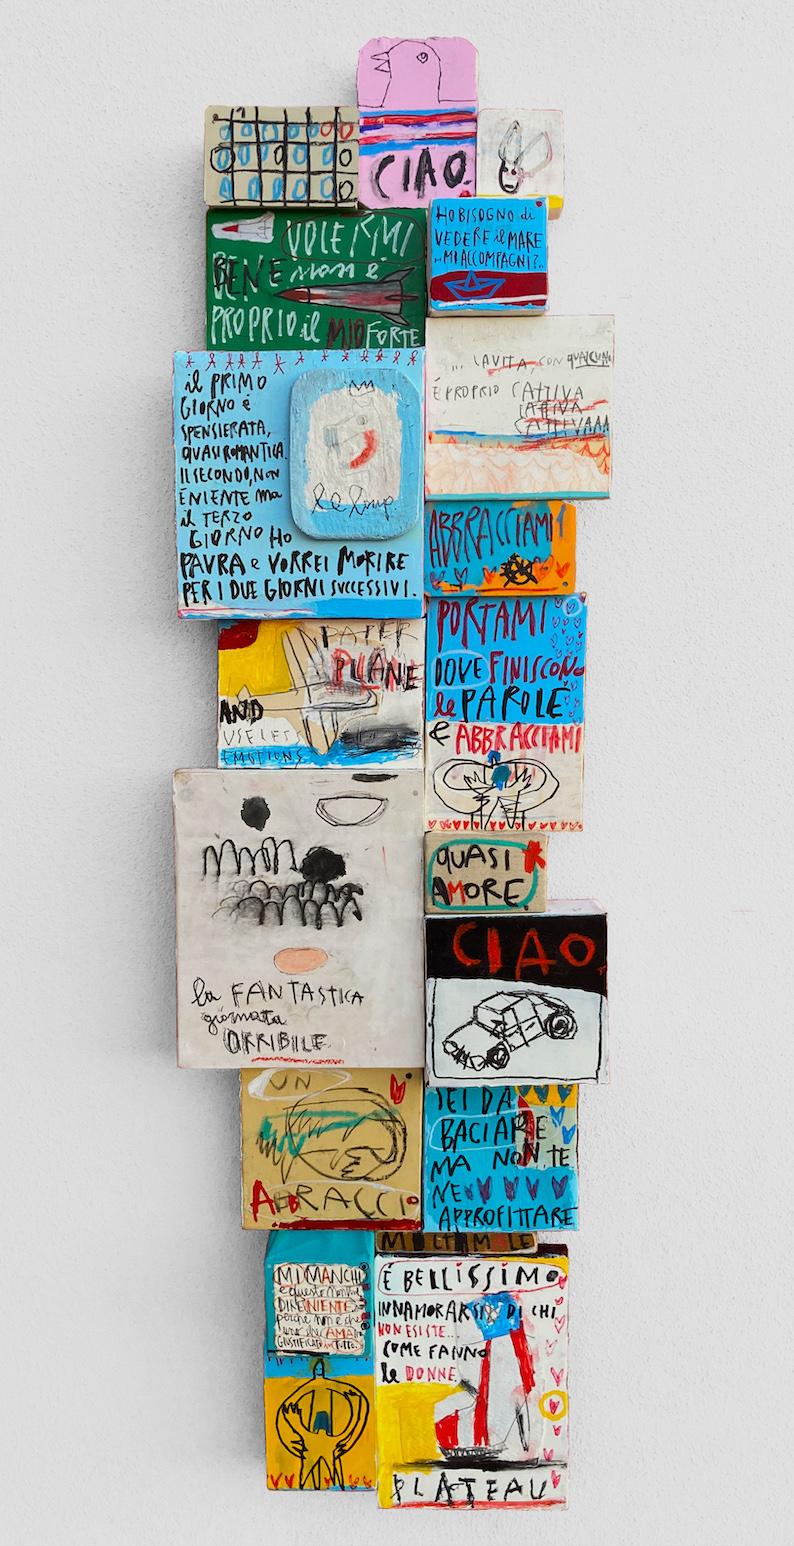 CIAO.
VOLERMI
BENE non è
PROPRIO il MIO FORTE
HO BISOGNO di
VEDERE il MARE
...MI ACCOMPAGNI?..
il PRIMO
GIORNO é
SPENSIERATA,
QUASI ROMANTICA.
Il SECONDO, NON
É NIENTE ma
il TERZO
GIORNO HO
PAURA e VORREI MORIRE
PER I DUE GIORNI SUCCESSIVI.
le loup
... LA VITA, CON QUALCUNO
É PROPRIO CATTIVA
CATTIVA
CATTIVAAA
ABBRACCIAMI
PAPER
PLANE
AND
USELESS
EMOTIONS
PORTAMI
DOVE FINISCONO
le PAROLE
e ABBRACCIAMI
QUASI
AMORE
la FANTASTICA
giornata
ORRIBILE.
CIAO.
UN
ABBRACCIO
SEI DA
BACIARE
MA NON TE
NE
APPROFITTARE
MI MANCHI
DIRE NIENTE
perché non è che
uno che AMA
É BELLISSIMO
INNAMORARSI DI CHI
NON ESISTE...
COME FANNO
le DONNE.
PLATEAU